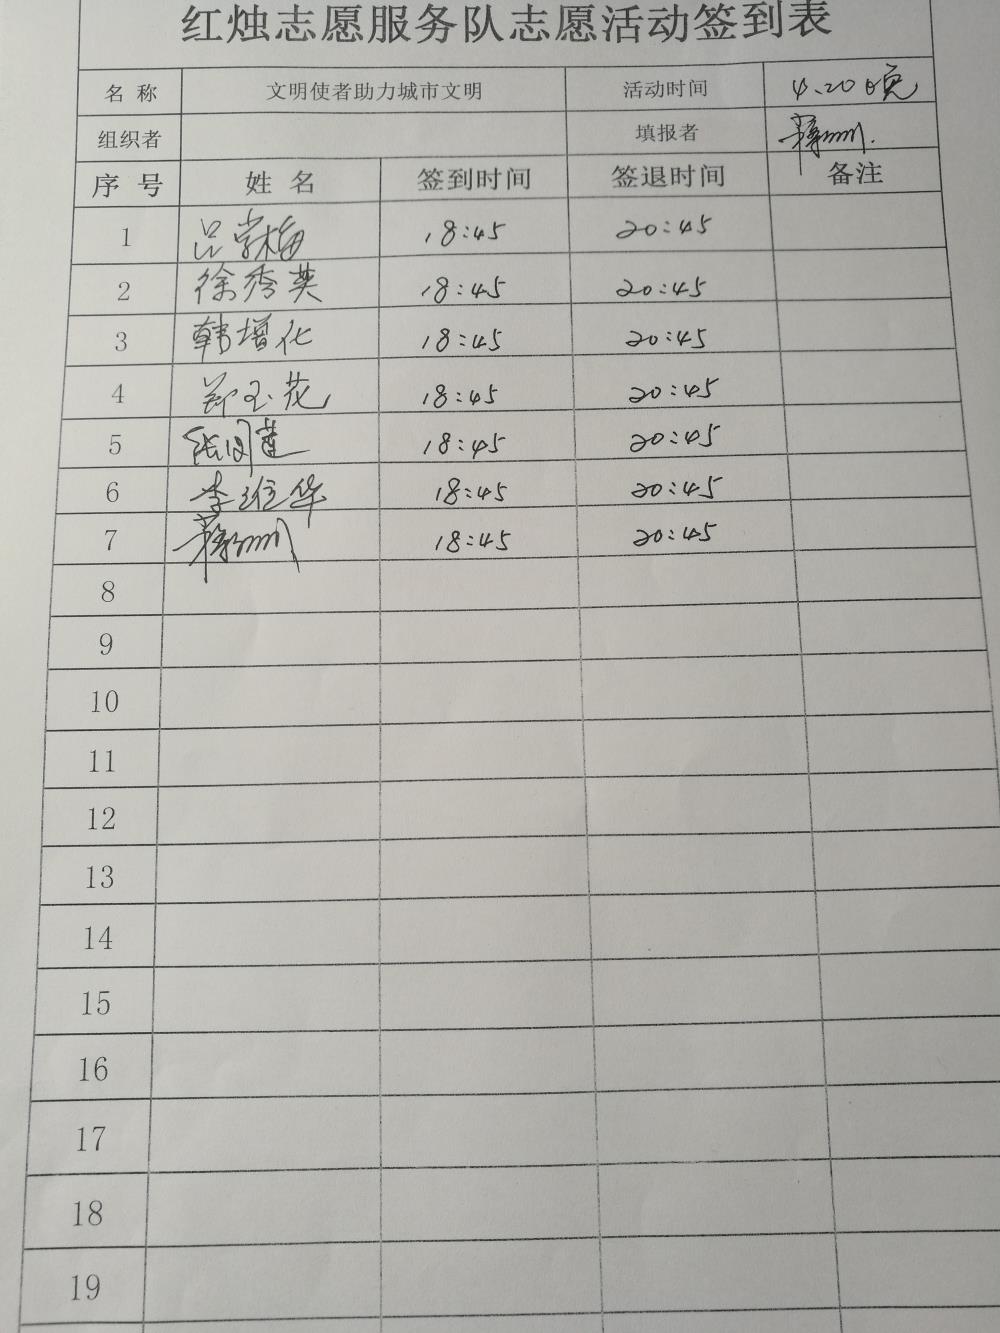 红烛志愿服务队志愿活动签到表
名 称 文明使者助力城市文明 活动时间 4.20日晚
组织者 填报者
序 号 姓 名 签到时间 签退时间 备注
1 吕常梅 18:45 20:45
2 徐秀英 18:45 20:45
3 韩增化 18:45 20:45
4 郑玉花 18:45 20:45
5 张同莲 18:45 20:45
6 李维华 18:45 20:45
7 18:45 20:45
8
9
10
11
12
13
14
15
16
17
18
19